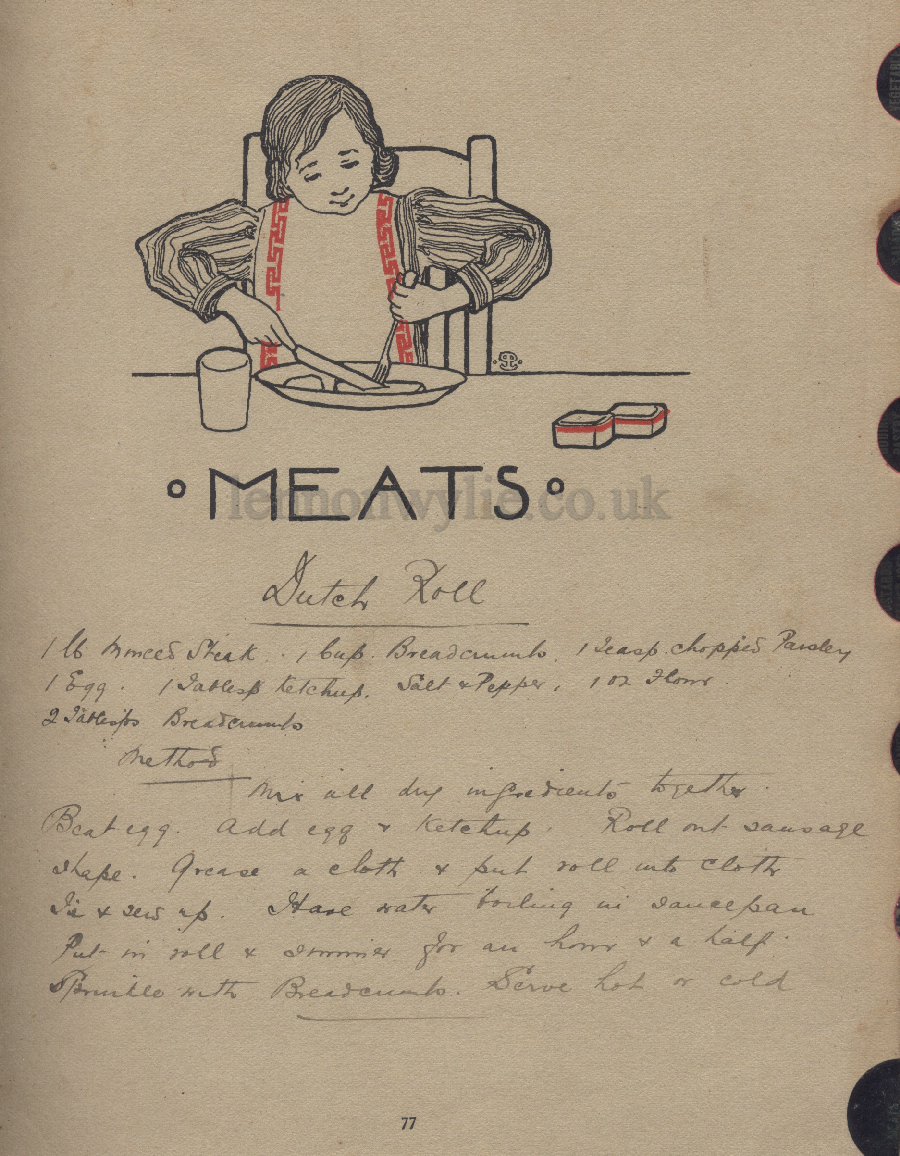 ° MEATS °
lennonwylie.co.uk
Dutch Roll
1 lb Minced Steak. 1 Cup. Breadcrumbs. 1 Teasp. chopped Parsley
1 Egg. 1 Tablesp Ketchup. Salt & Pepper. 1 oz Flour.
2 Tablesps Breadcrumbs
Method
Mix all dry ingredients together.
Beat egg. Add egg & Ketchup. Roll out sausage
shape. Grease a cloth & put roll into cloth
Tie & sew up. Have water boiling in saucepan
Put in roll & simmer for an hour & a half.
Sprinkle with Breadcrumbs. Serve hot or cold
77